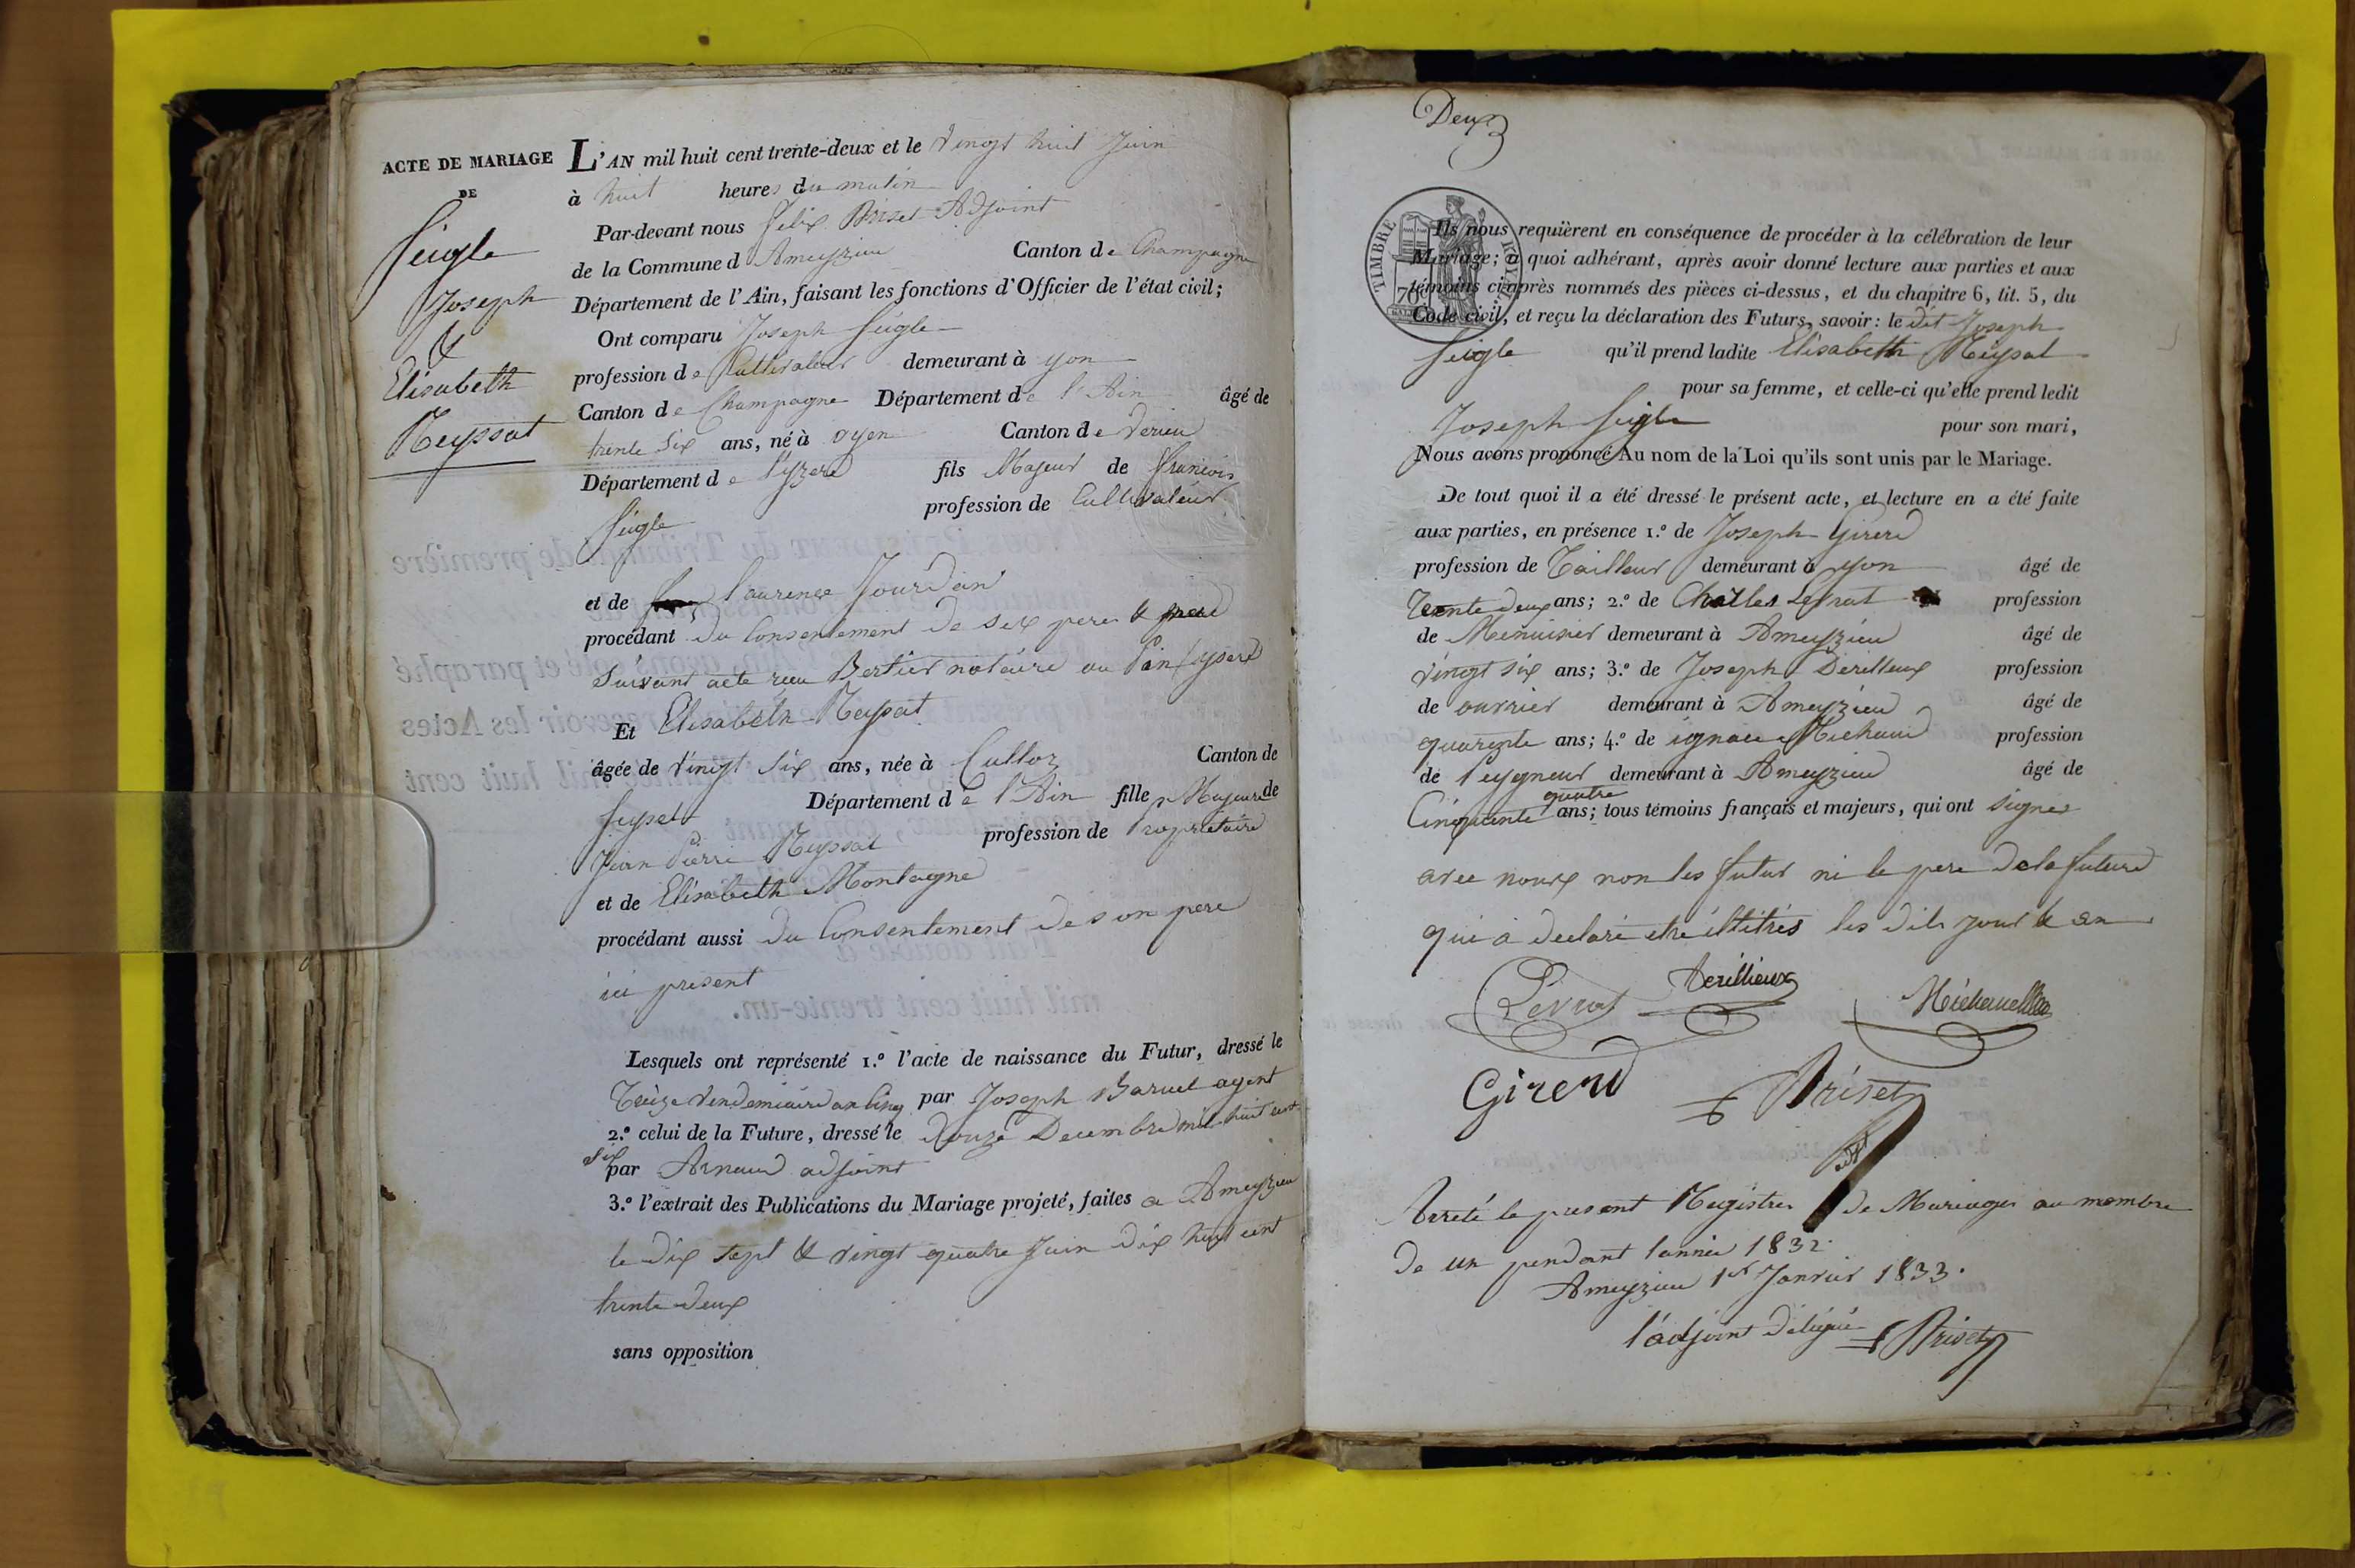 ACTE DE MARIAGE
DE
Seigle
Joseph
&
Elisabeth
Reyssat
L'AN mil huit cent trente-deux et le vingt huit Juin
à huit heures du matin
Par-devant nous Felix Briset Adjoint
de la Commune d'Ameyzieu Canton de Champagne
Département de l'Ain, faisant les fonctions d'Officier de l'état civil;
Ont comparu Joseph Seigle
profession de Cultivateur demeurant à yon
Canton de Champagne Département de l'Ain âgé de
trente six ans, né à oyeu Canton de Virieu
Département de l'yzere fils Majeur de francois
Seigle profession de Cultivateur
et de Laurence Jourdan
procédant du Consentement de ses pere & mere
suivant acte recu Bertier notaire au Pin (ysere)
Et Elisabeth Reyssat
âgée de vingt six ans, née à Culloz Canton de
seyssel Département de l'Ain fille Majeure de
Jean Pierre Reyssat profession de proprietaire
et de Elisabeth Montagne
procédant aussi du Consentement de son pere
ici present
Lesquels ont représenté 1.º l'acte de naissance du Futur, dressé le
Treize vendemiaire an Cinq par Joseph Baruel agent
2.º celui de la Future, dressé le Douze Decembre mil huit cent
six
par Arnaud adjoint
3.º l'extrait des Publications du Mariage projeté, faites a Ameyzieu
le dix sept & vingt quatre Juin dix huit cent
trente deux
sans opposition
Deux
TIMBRE ROYAL
70
Ils nous requièrent en conséquence de procéder à la célébration de leur
Mariage; à quoi adhérant, après avoir donné lecture aux parties et aux
témoins ci-après nommés des pièces ci-dessus, et du chapitre 6, tit. 5, du
Code civil, et reçu la déclaration des Futurs, savoir: le dit Joseph
Seigle qu'il prend ladite Elisabeth Reyssat
pour sa femme, et celle-ci qu'elle prend ledit
Joseph Seigle pour son mari,
Nous avons prononcé Au nom de la Loi qu'ils sont unis par le Mariage.
De tout quoi il a été dressé le présent acte, et lecture en a été faite
aux parties, en présence 1.º de Joseph Girerd
profession de Tailleur demeurant à yon âgé de
Trente deux ans; 2.º de Charles Levrat profession
de Menuisier demeurant à Ameyzieu âgé de
vingt six ans; 3.º de Joseph Derillieux profession
de ouvrier demeurant à Ameyzieu âgé de
quarente ans; 4.º de ignace Michaud profession
de Peygneur demeurant à Ameyzieu âgé de
quatre
Cinquente ans; tous témoins français et majeurs, qui ont signés
avec nous non les futur ni le pere de la future
qui a declaré etre illitirés les dits jour & an
Levrat Derillieux Michaud
Girerd Briset
Arreté le present Registre de Mariages au nombre
de un pendant l'année 1832.
Ameyzieu 1er Janvier 1833.
l'adjoint délégué Briset